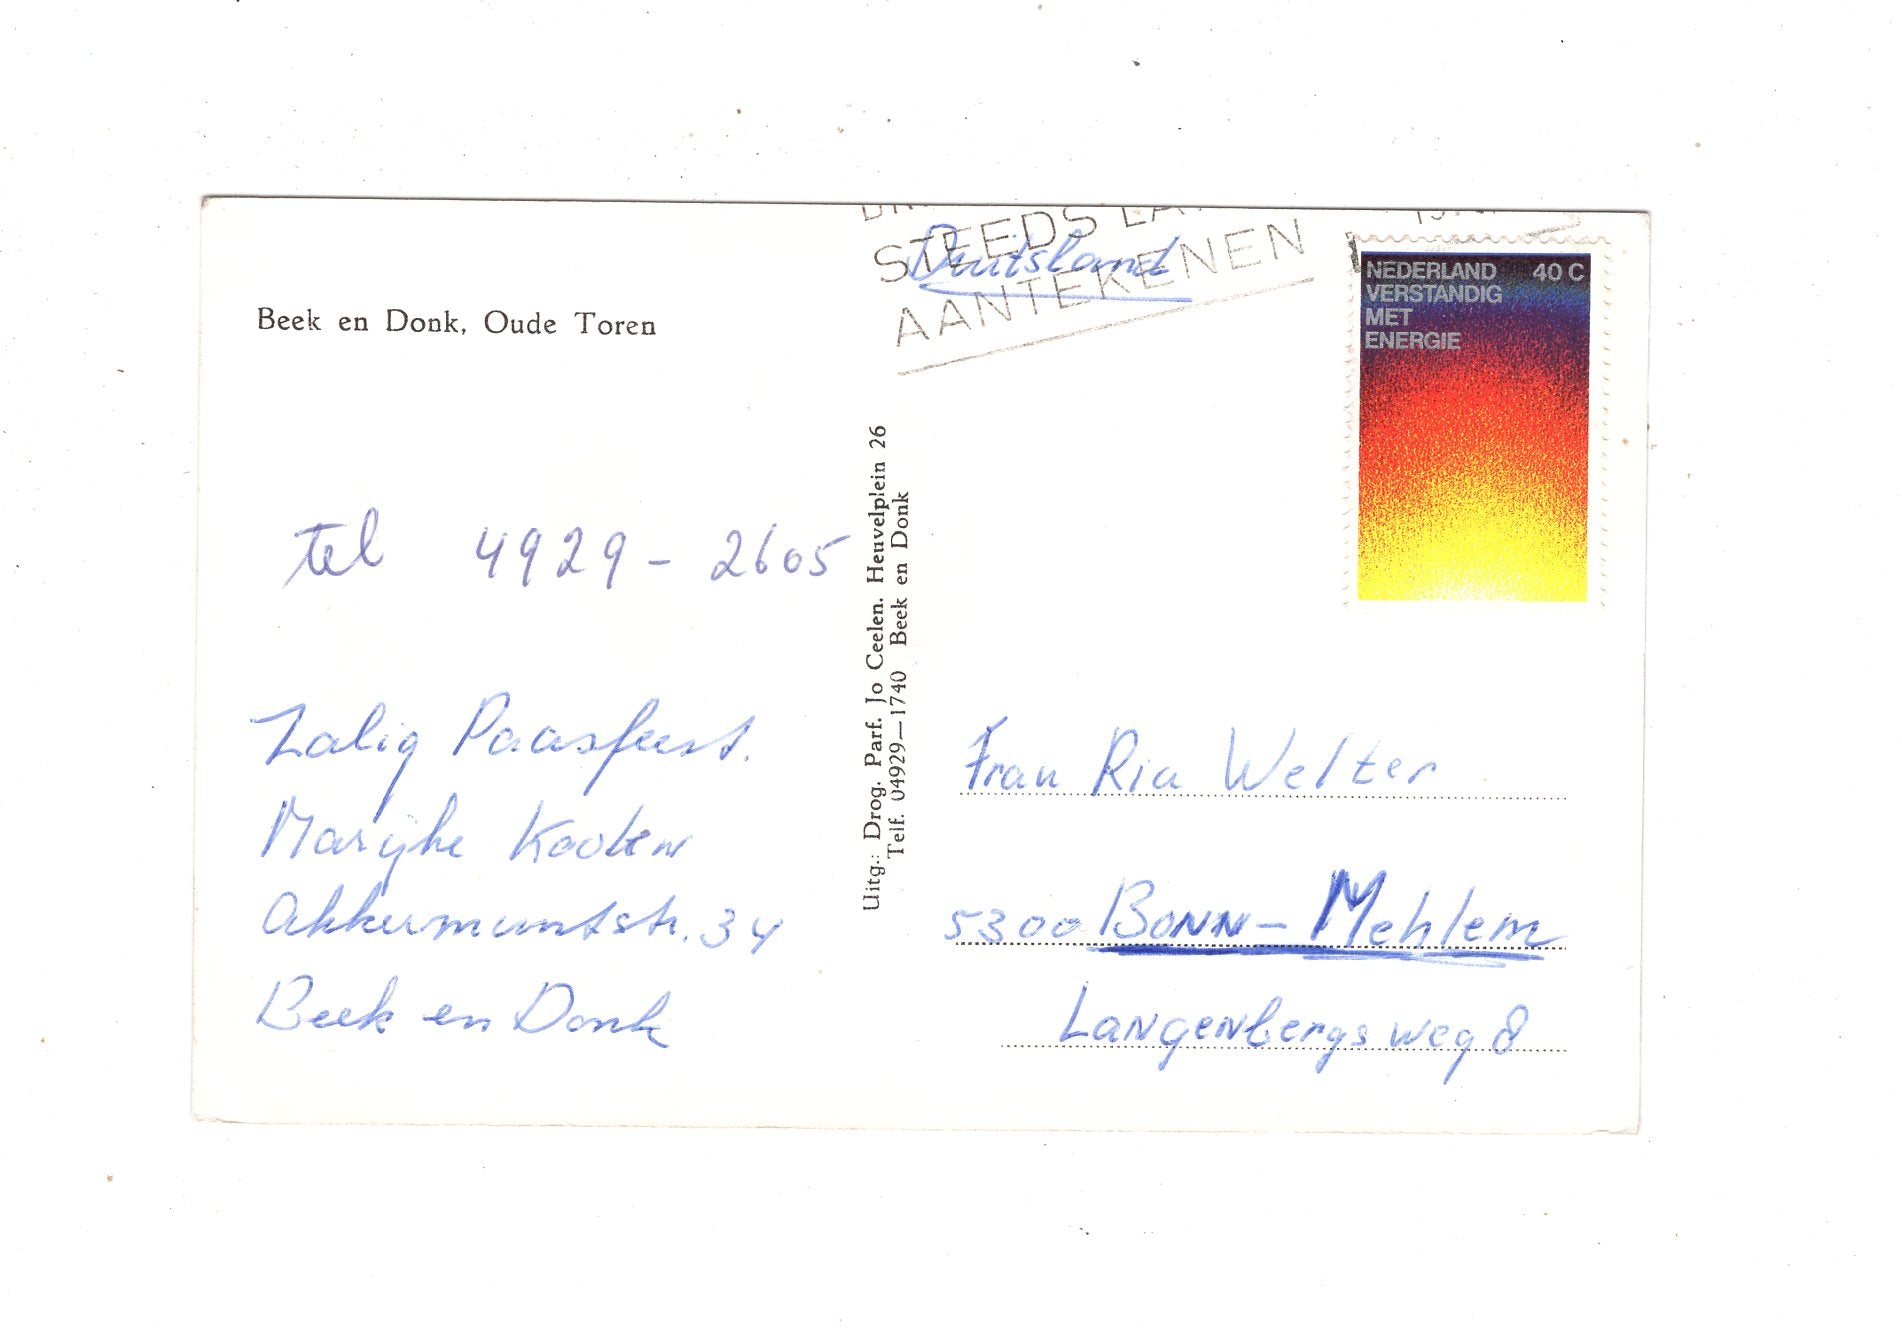 Beek en Donk, Oude Toren
tel 4929 - 2605
Zalig Paasfeest.
Marijke Kooten
Akkermuntstr. 34
Beek en Donk
Uitg.: Drog. Parf. Jo Ceelen. Heuvelplein 26
Telf. 04929—1740 Beek en Donk
STEEDS LA
AANTEKENEN
Duitsland
NEDERLAND 40 C
VERSTANDIG
MET
ENERGIE
Frau Ria Welter
5300 BONN - Mehlem
Langenbergsweg 8